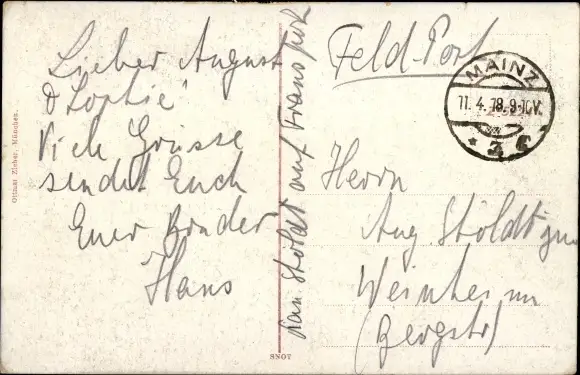 Lieber August
& Sophie"
Viele Grüsse
sendet Euch
Euer Bruder
Hans
Stöldt auf Transport
Feld-Post
MAINZ
11. 4. 18. 9-10V.
* 2 *
Herrn
Aug. Stöldt jun
Weinheim
(Bergstr)
Ottmar Zieher, München.
SNOT